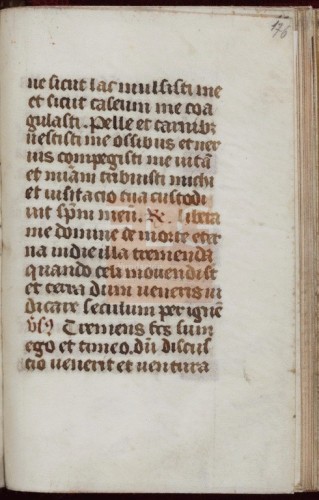 ne sicut lac mulsisti me
et sicut caseum me coa
gulasti. Pelle et carnibꝫ
uestisti me ossibus et ner
uis compegisti me uitā
et mīam tribuisti michi
et uisitacio tua custodi
uit spm̄ meū. R. Libera
me domine de morte eter
na in die illa tremenda
quando celi mouendi sūt
et terra dum ueneris iu
dicare seculum per ignē
v̄s Tremens fcs̄ sum
ego et timeo. dū discus
sio uenerit et uentura